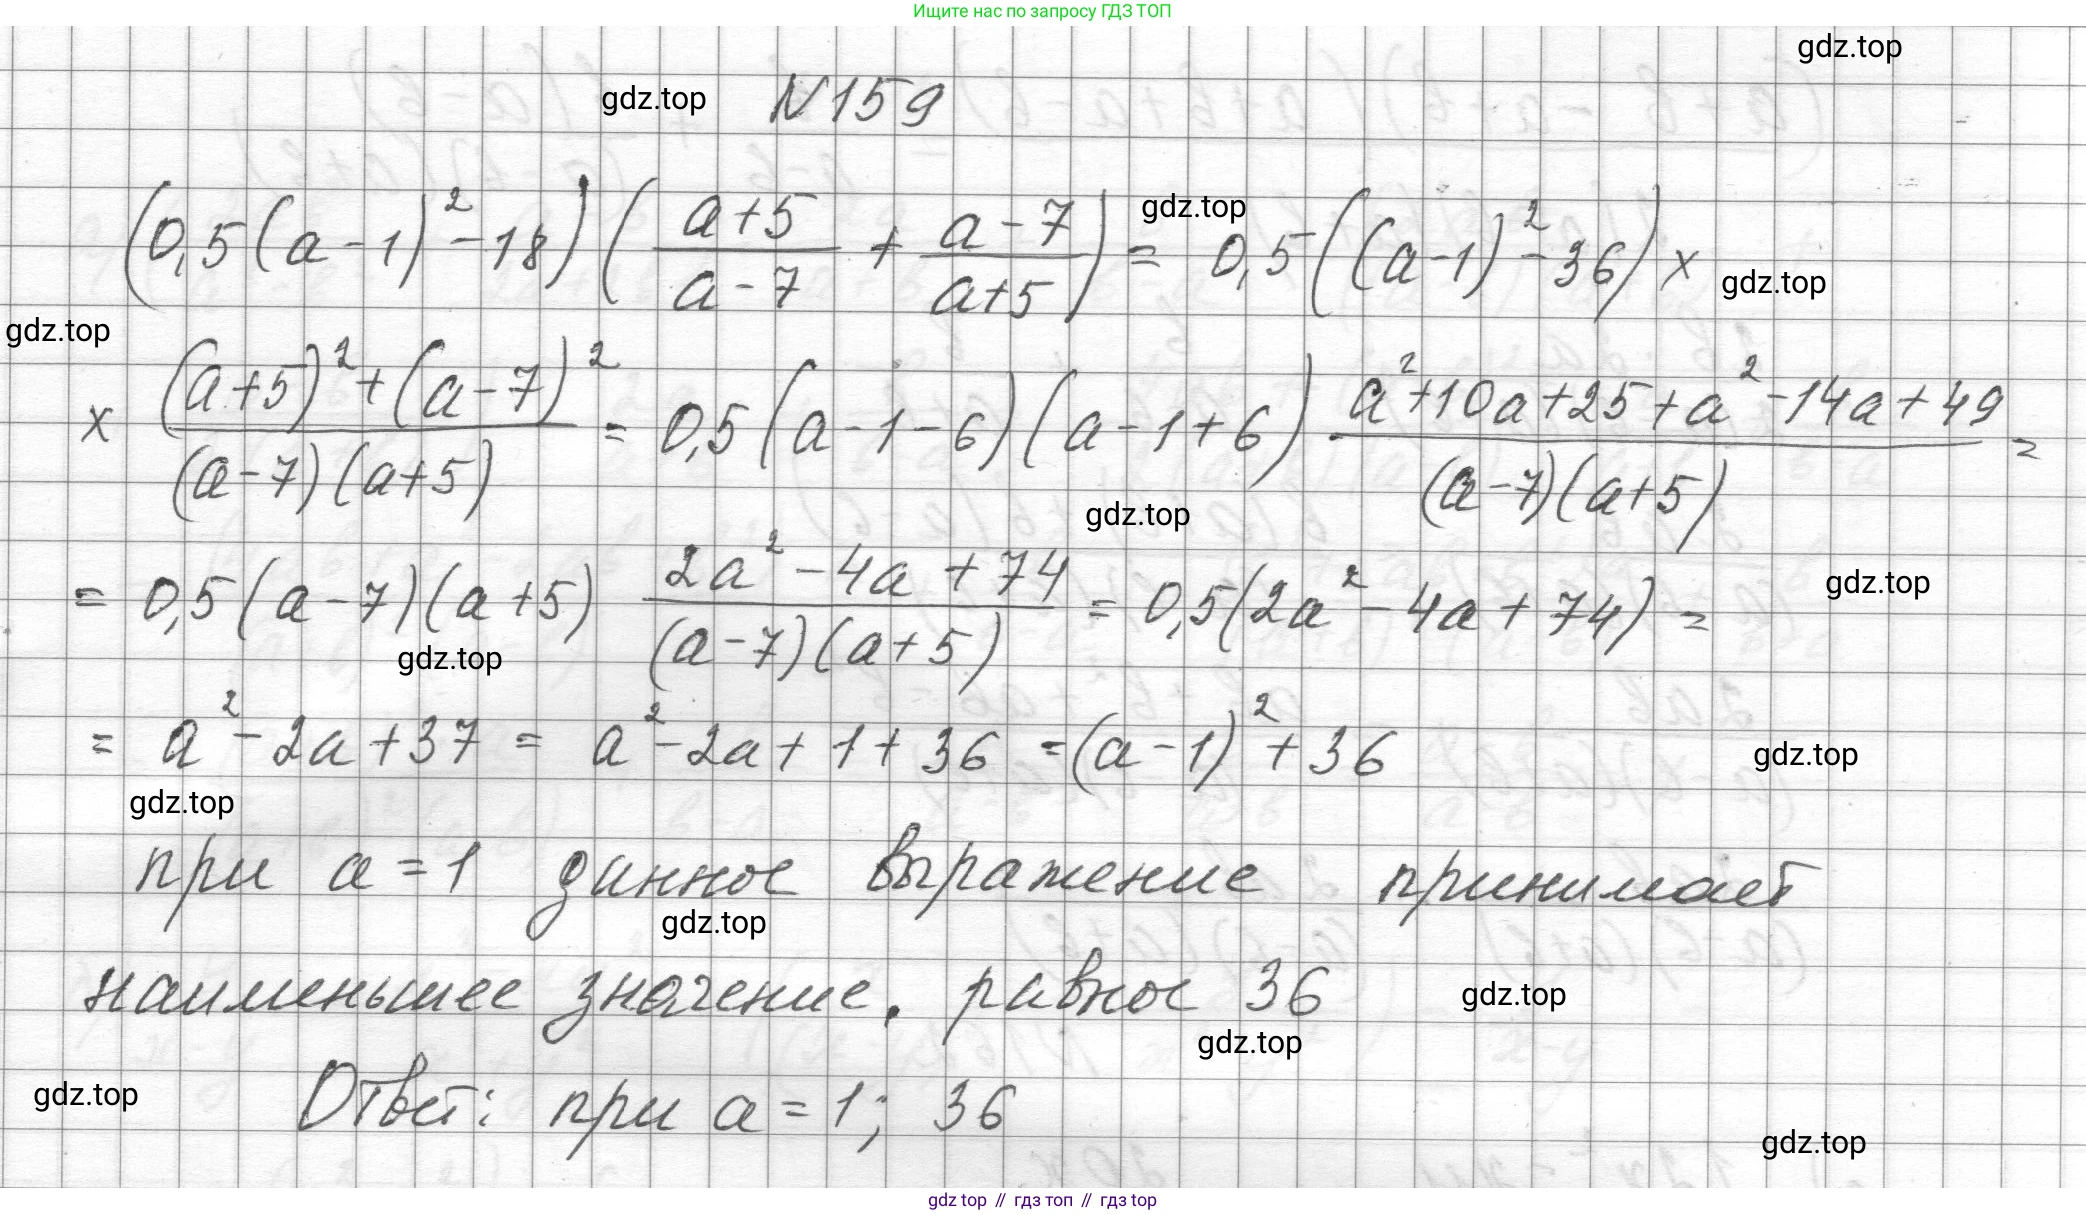 Ищите нас по запросу ГДЗ ТОП
gdz.top
gdz.top N159
(0,5(a-1)²-18)((a+5)/(a-7) + (a-7)/(a+5)) = gdz.top 0,5((a-1)²-36) ×
gdz.top
gdz.top
× ((a+5)²+(a-7)²)/((a-7)(a+5)) = 0,5(a-1-6)(a-1+6) · (a²+10a+25+a²-14a+49)/((a-7)(a+5)) =
gdz.top
= 0,5(a-7)(a+5) (2a²-4a+74)/((a-7)(a+5)) = 0,5(2a²-4a+74) =
gdz.top
gdz.top
= a²-2a+37 = a²-2a+1+36 = (a-1)²+36
gdz.top
gdz.top
при a=1 данное выражение принимает
gdz.top
наименьшее значение, равное 36
gdz.top
gdz.top
gdz.top
Ответ: при a=1; 36
gdz.top
gdz top // гдз топ // гдз top